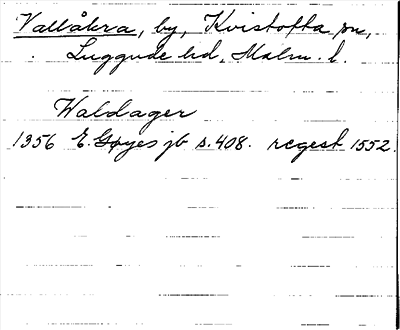 Vallåkra, by, Kvistofta sn,
Luggude hd, Malm. l.
Waldager
1356 E. Gøyes jb s. 408. regest 1552.